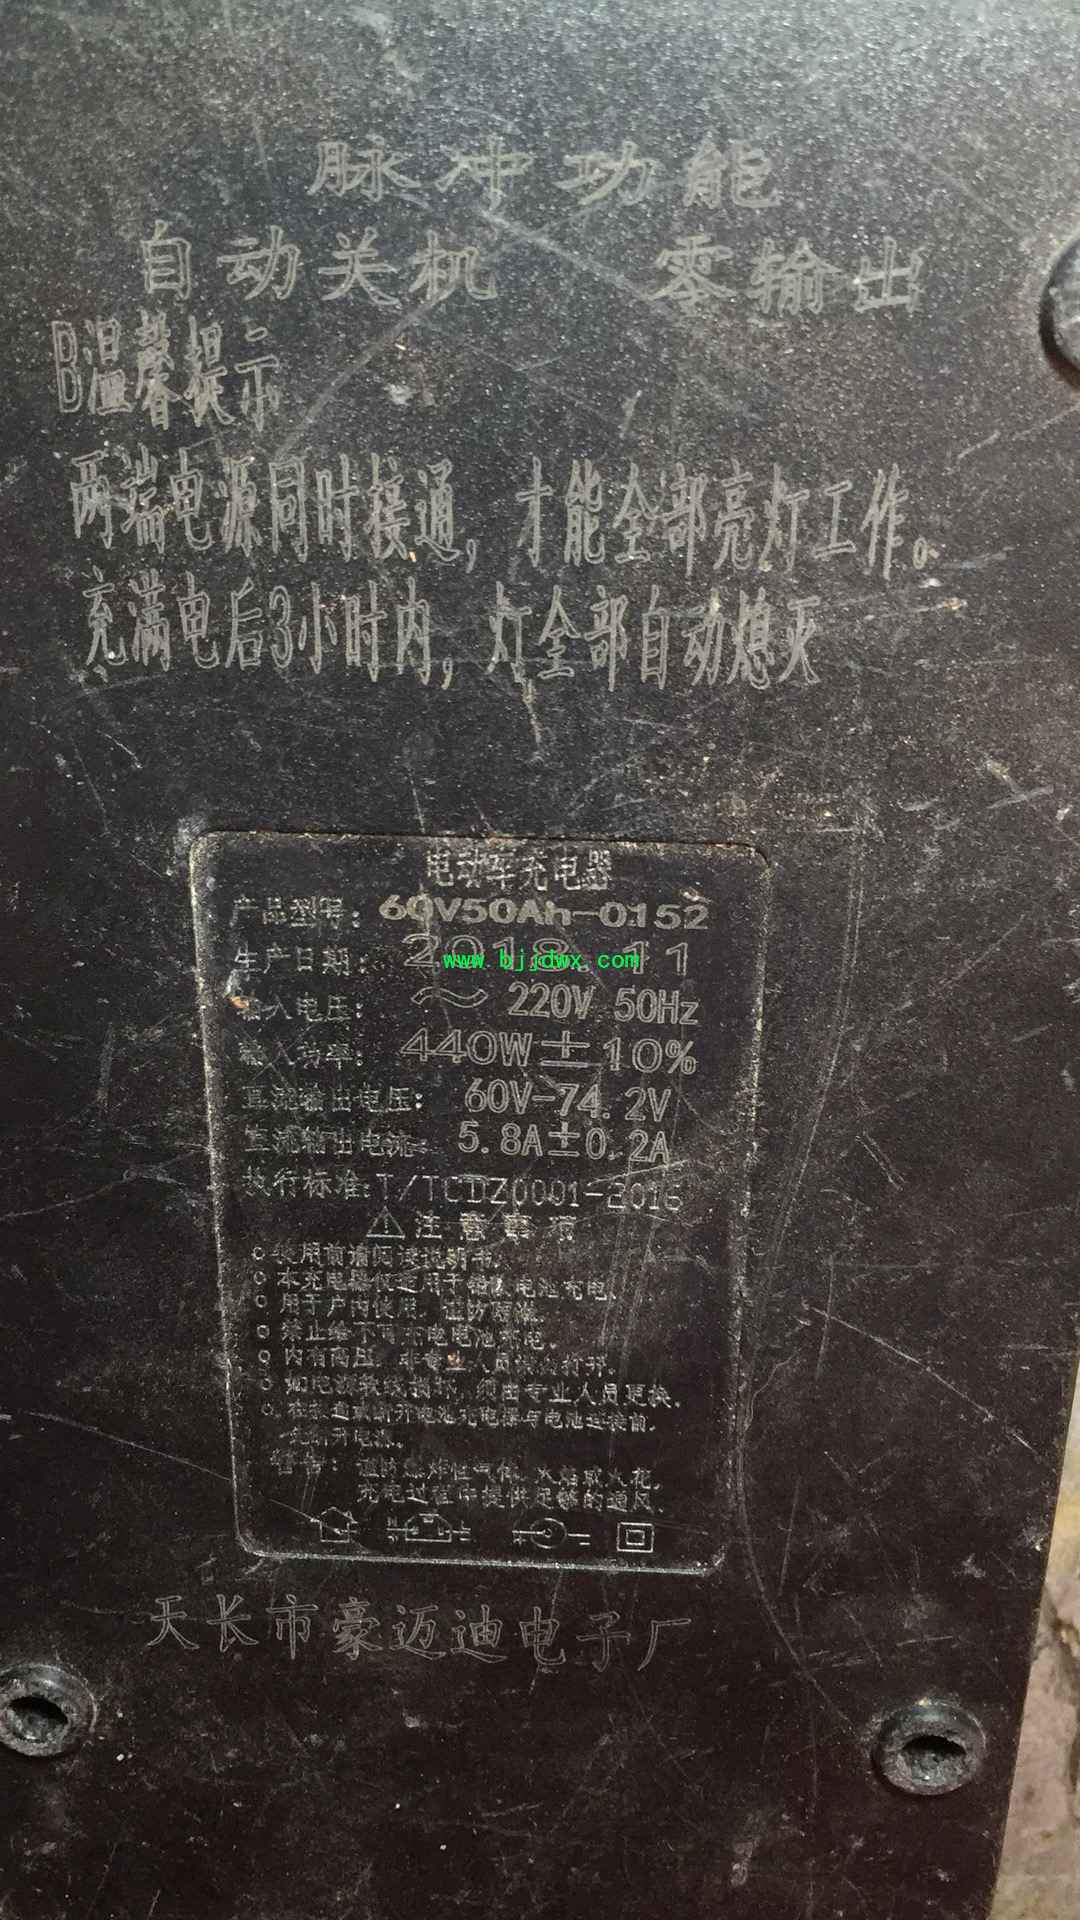 脉冲功能
自动关机 零输出
B温馨提示
两端电源同时接通，才能全部亮灯工作。
充满电后3小时内，灯全部自动熄灭
电动车充电器
产品型号：60V50Ah-0152
生产日期：2018.11
www.bjjdwx.com
输入电压：～220V 50Hz
输入功率：440W±10%
直流输出电压：60V-74.2V
直流输出电流：5.8A±0.2A
执行标准：T/TCDZ0001-2016
⚠注意事项
使用前请阅读说明书.
本充电器仅适用于铅酸电池充电.
用于户内使用，谨防雨淋.
禁止给不可充电电池充电.
内有高压，非专业人员打开.
如电源软线损坏，须由专业人员更换.
在接通或断开电池充电器与电池连接前.
先断开电源.
警告：谨防爆炸性气体，火焰或火花，
充电过程中提供足够的通风.
天长市豪迈迪电子厂